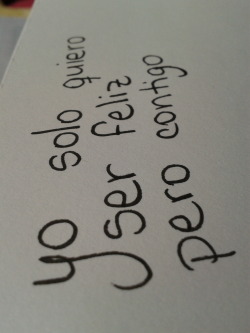 yo solo quiero
ser feliz
pero contigo